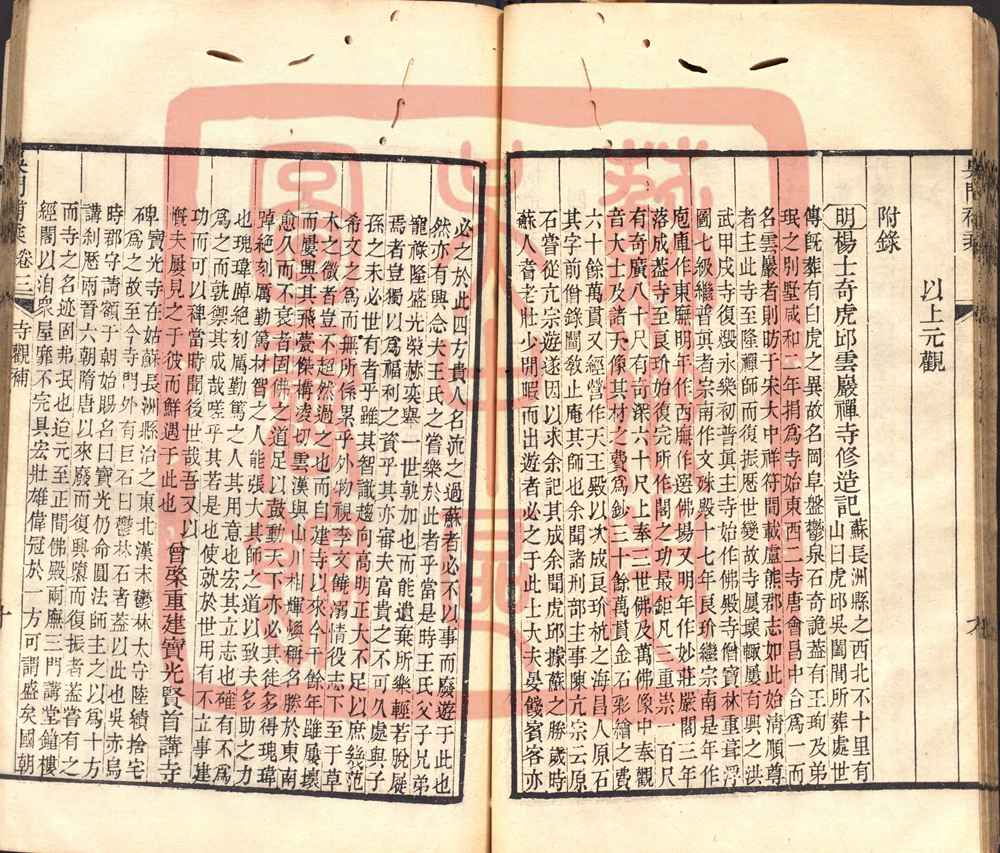 以上元觀
附錄
明楊士奇虎邱雲巖禪寺修造記
蘇長洲縣之西北不十里有
山曰虎邱吳闔閭所葬處世
傳旣葬有白虎之異故名岡阜盤鬱泉石奇詭蓋有王珣及弟
珉之別墅咸和二年捐為寺始東西二寺唐會昌中合為一而
名雲巖者則昉于宋大中祥符間載盧熊郡志如此始清順尊
者主此寺至隆禪師而復振歷世變故寺屢壞輒屢有興之洪
武甲戌寺復燬永樂初普真主寺始作佛殿寺僧寶林重葺浮
圖七級繼普真者宗南作文殊殿十七年良玠繼宗南是年作
庖庫作東廡明年作西廡作選佛場又明年作妙莊嚴閣三年
落成蓋寺至良玠始復完所作閣之功最鉅凡三重崇一百尺
有奇廣八十尺有奇深六十尺上奉三世佛及萬佛像中奉觀
音大士及諸天像其材之費為鈔三十餘萬貫金石彩繪之費
六十餘萬貫又經營作天王殿以次成良玠杭之海昌人原石
其字前僧錄闡教止庵其師也余聞諸刑部主事陳亢宗云原
石嘗從亢宗遊遂因以求余記其成余聞虎邱據蘇之勝歲時
蘇人耆老壯少閒暇而出遊者必之于此上大夫晏餞賓客亦
吳門補乘
九
必之於此四方貴人名流之過蘇者必不以事而廢遊于此也
然亦有興念夫王氏之嘗樂於此者乎當是時王氏父子兄弟
寵祿隆盛光榮赫奕舉一世孰加也而能遺棄所樂輕若脫屣
焉者豈獨以為福利之資乎其亦審夫富貴之不可久處與子
孫之未必世有者乎雖其智識趨向高明正大不足以庶幾范
希文之為而無所係累乎外物視李文饒溺情役志下至于草
木之微者豈不超然過之也而自建寺以來今千餘年雖屢壞
而屢興其飛甍傑構凌切雲漢與山川相輝暎稱名勝於東南
愈久而不衰者固佛之道足以鼓動天下亦必其徒多得瑰瑋
踔絕刻厲勤篤材智之人能張大其師之道以致夫多助之力
也瑰瑋踔絕刻厲勤篤之人其用意也宏其立志也確有不為
為之而孰禦其成哉嗟乎其若是也使就於世用有不立事建
功而可以裨當時聞後世也哉吾又以
慨夫屢見之于彼而鮮遇于此也
曾棨重建寶光賢首講寺
碑寶光寺在姑蘇長洲縣治之東北漢末鬱林太守陸績捨宅
為之故至今寺門外有巨石曰鬱林石者蓋以此也吳赤烏
時郡守為請額于朝始賜名曰寶光仍命圓法師主之以為十方
講剎歷兩晉六朝隋唐以來廢而復興隳而復振者蓋嘗有之
而寺之名迹固弗泯也迨元至正間佛殿兩廡三門講堂鐘樓
經閣以洎眾屋靡不完具宏壯雄偉冠於一方可謂盛矣國朝
吳門補乘 卷三 寺觀補
十